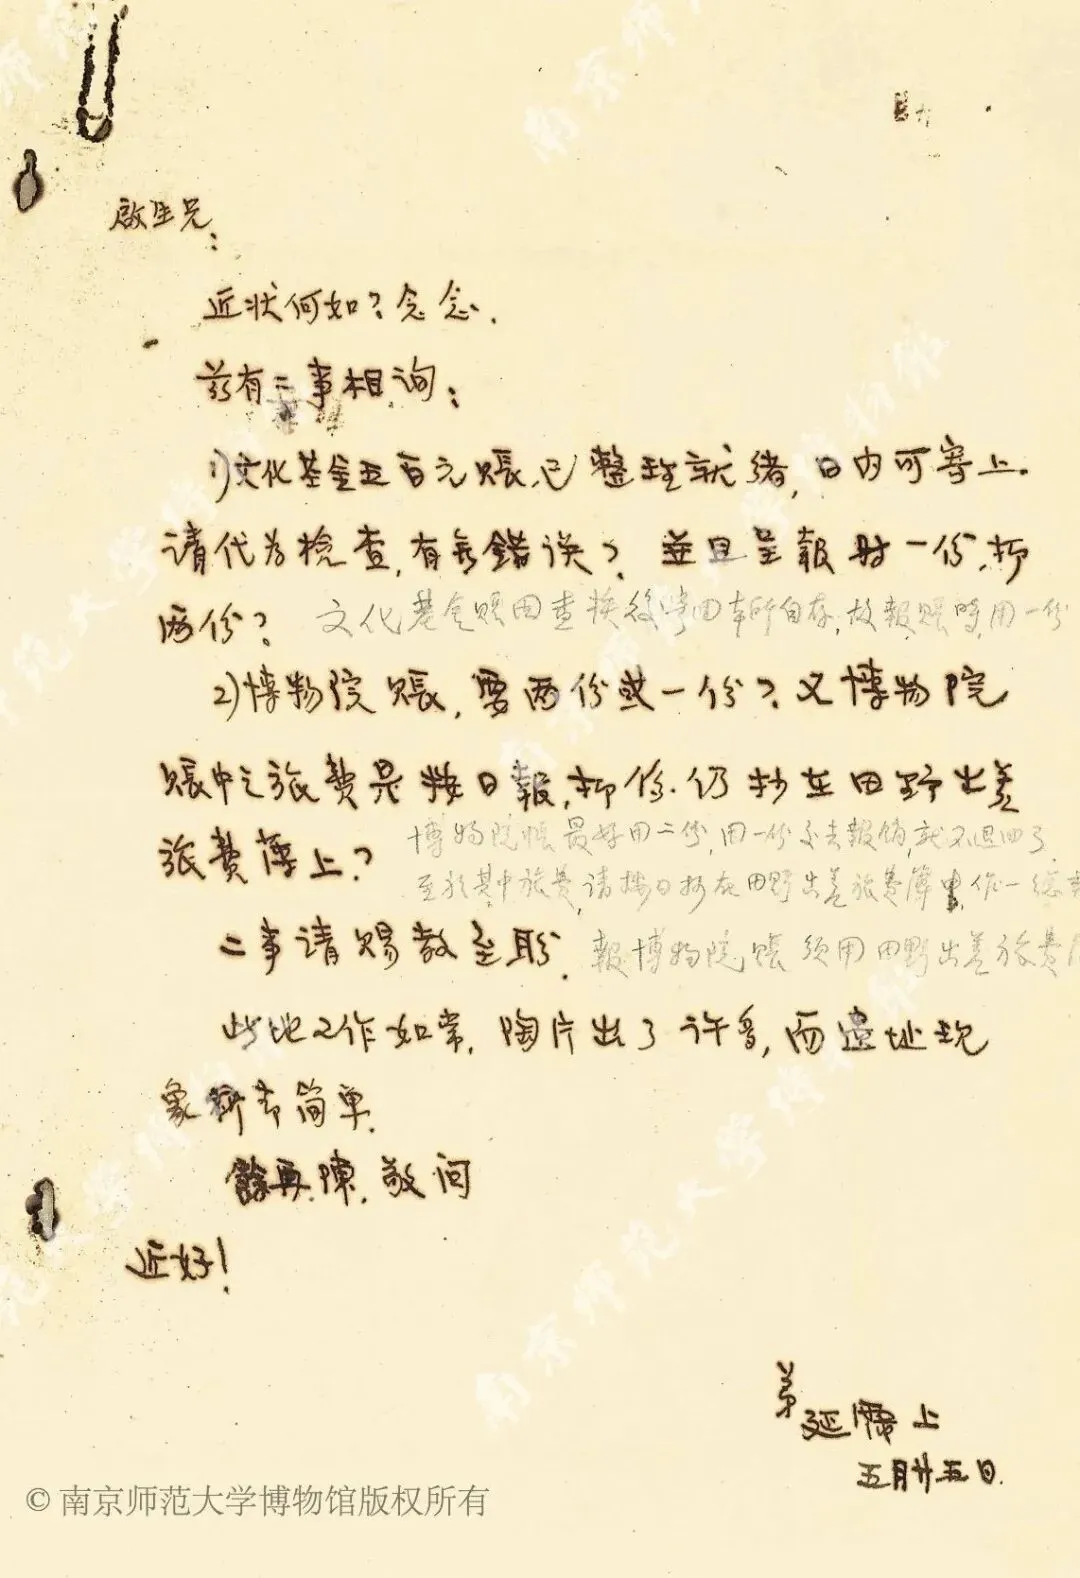 啟生兄：
近状何如？念念.
兹有二事相询：
1)文化基金五百元賬,已整理就绪,日内可寄上.
请代为检查,有無錯误？並且呈報时一份,抑
两份？文化基金賬因查撥後寄回本所自存,故報賬時,用一份
2)博物院賬,要两份或一份？又博物院
賬中之旅费是按日報,抑係仍抄在田野出差
旅費薄上？
博物院帐最好用二份,用一份乑去報销,就不退回了.
至於其中旅费,请按日抄在田野出差旅费簿中,作一總
二事请赐教至盼.報博物院賬须用田野出差旅费
此地工作如常,陶片出了许多,而遗址现
象稍芾简单.
餘再陳.敬问
近好！
弟
延霈上
五月廿五日.
© 南京师范大学博物馆版权所有